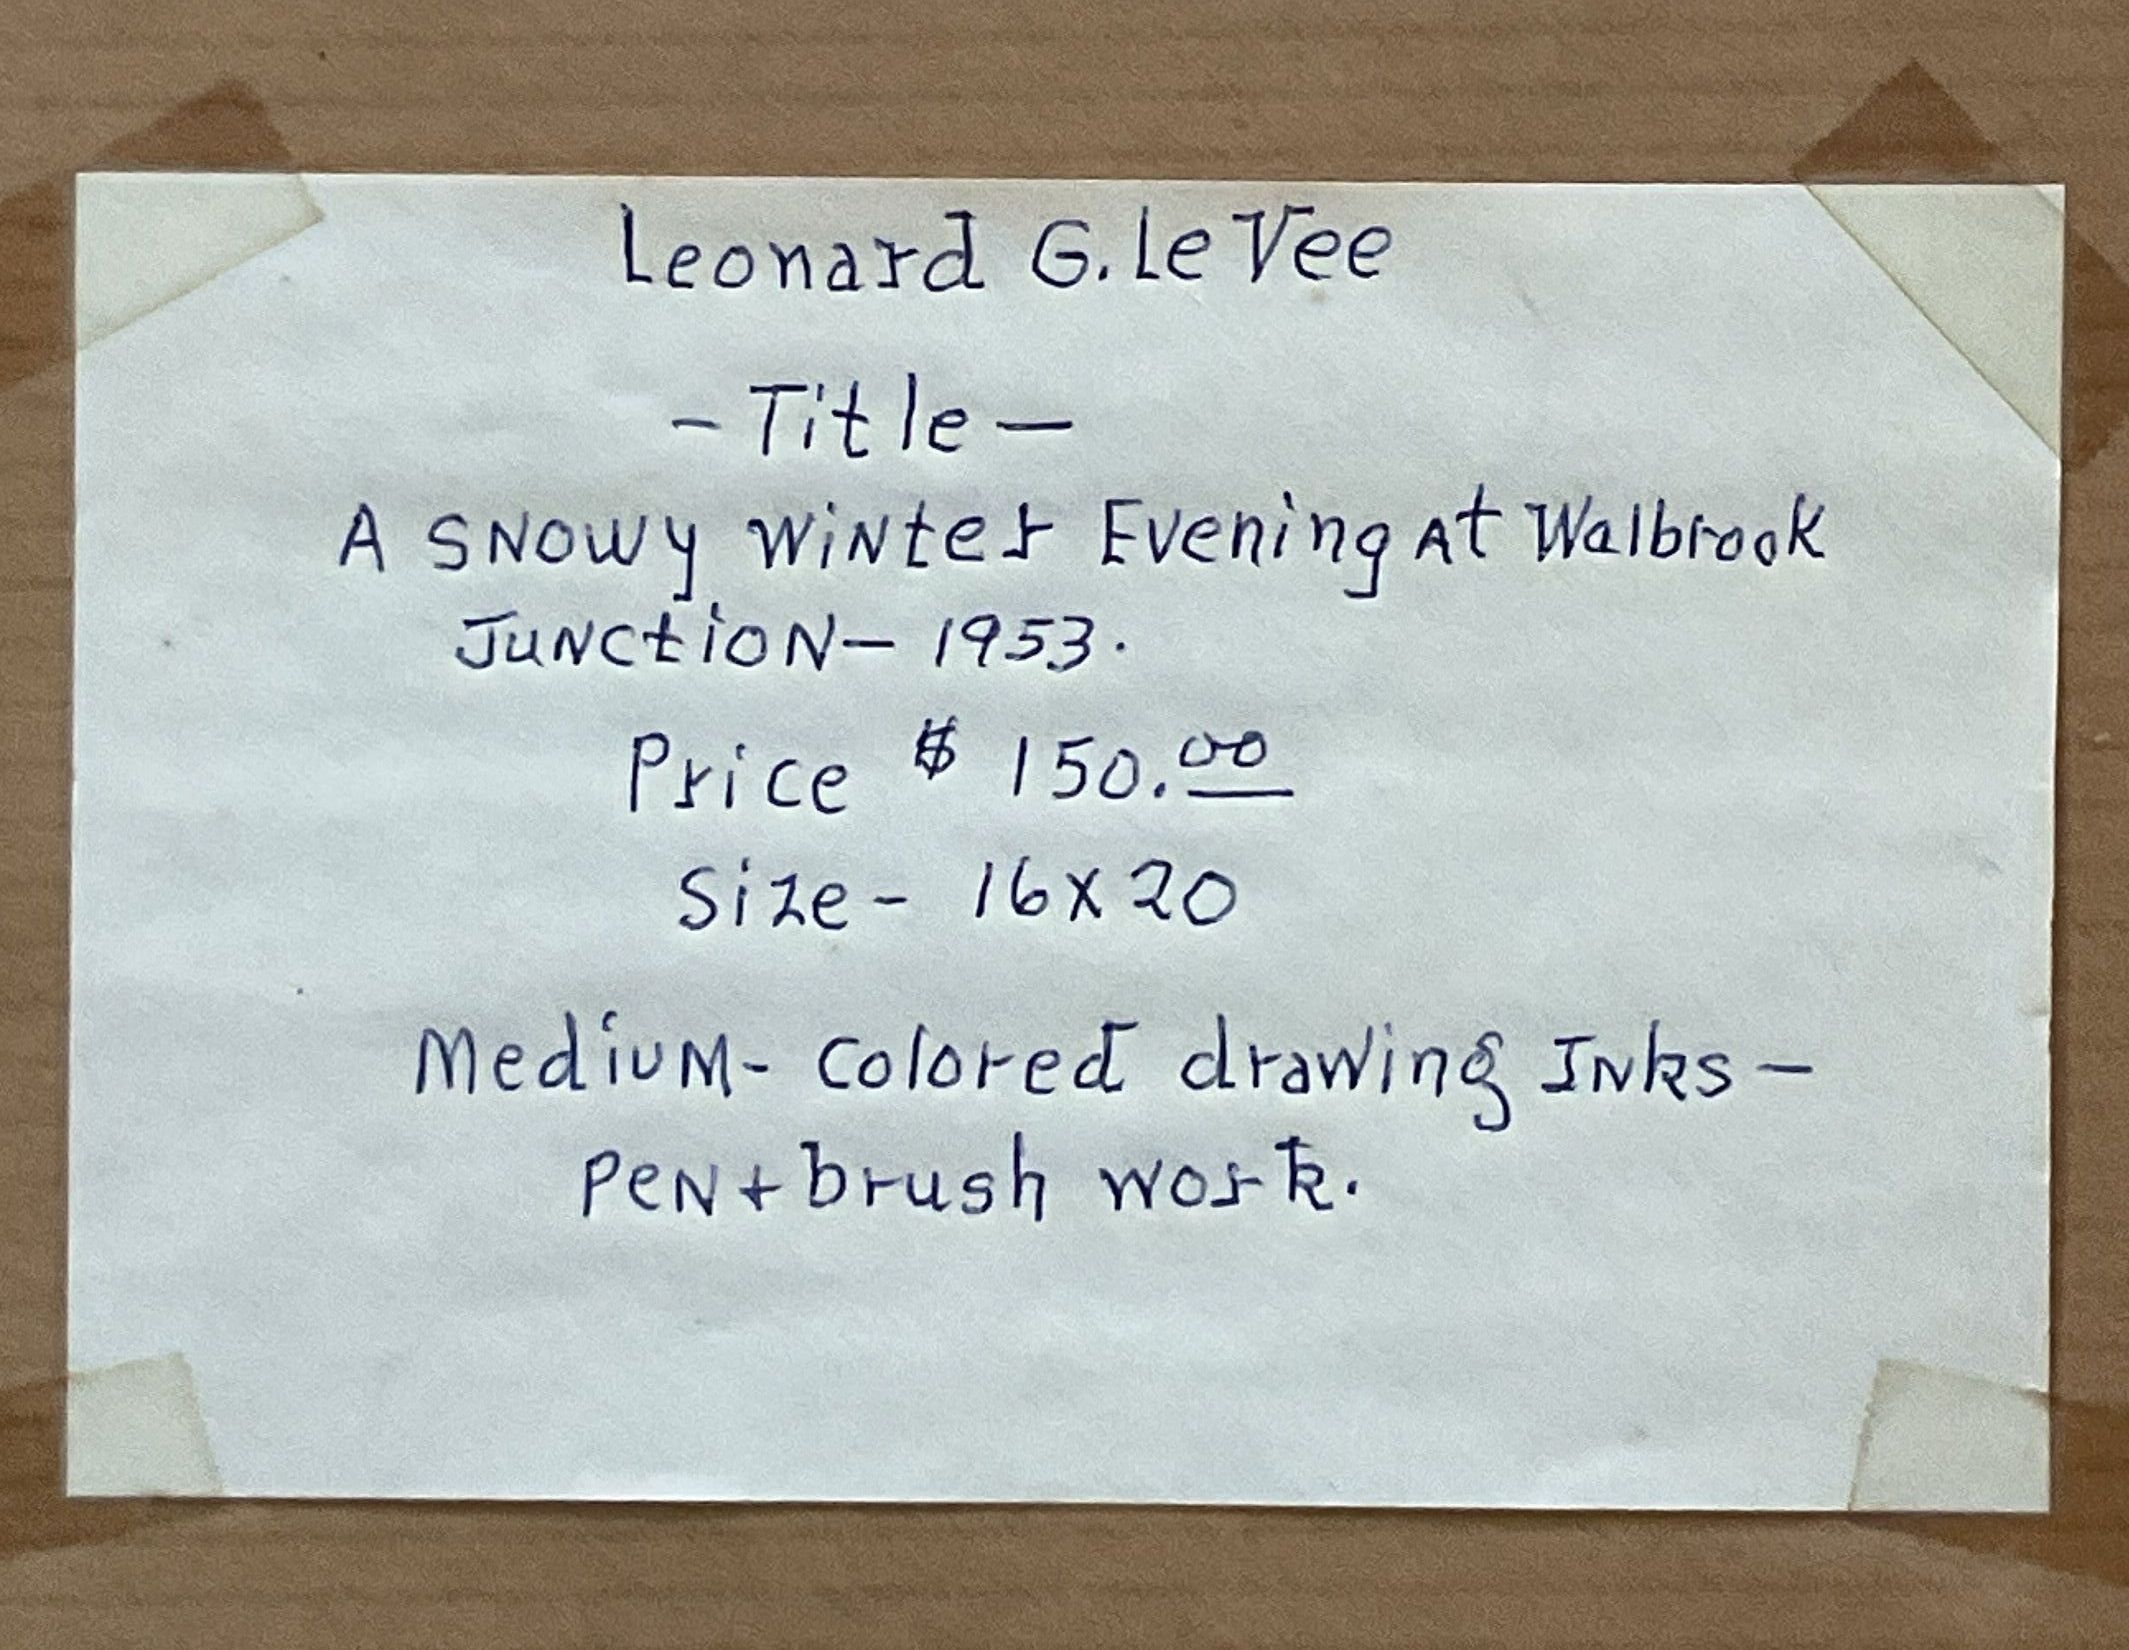 Leonard G. Le Vee
- Title -
A SNOWY WiNter Evening At Walbrook
JUNCtiON - 1953.
Price $ 150.00
Size - 16 x 20
MediUM - colored drawing INks -
PeN + brush work.